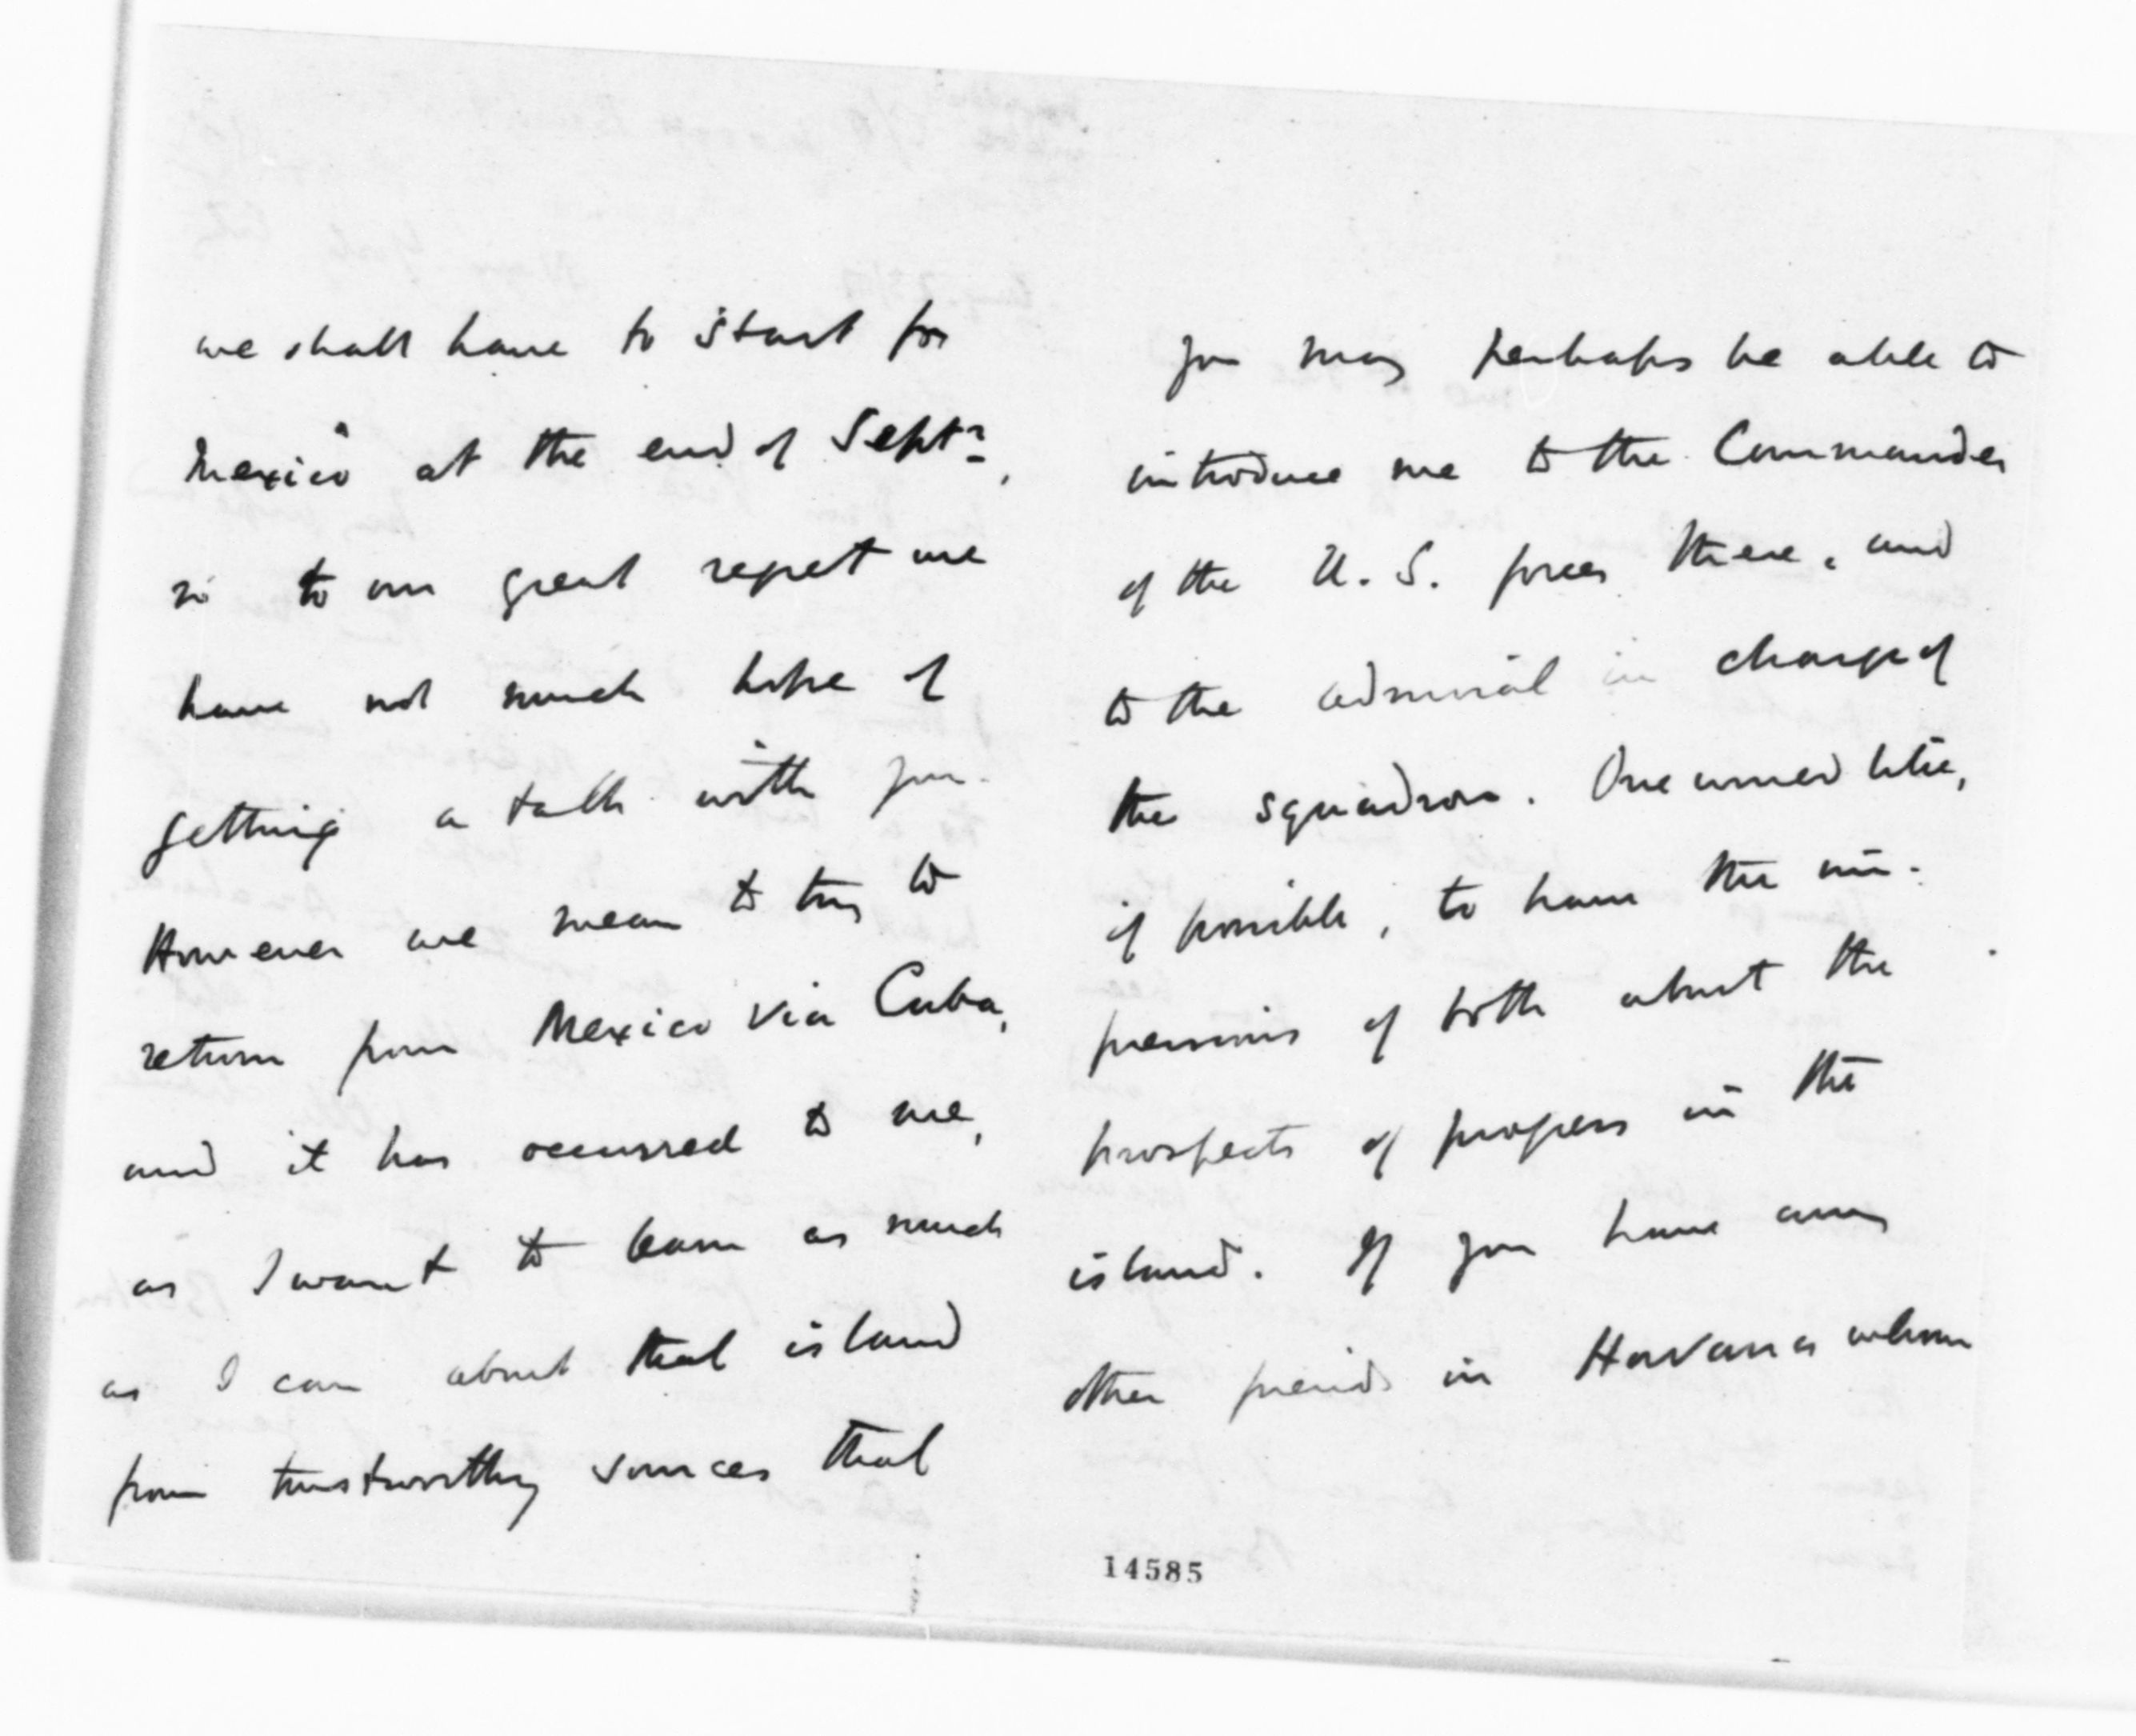 we shall have to start for
Mexico at the end of Septr.,
so to our great regret we
have not much hope of
getting a talk with you.
However we mean to try to
return from Mexico via Cuba,
and it has occurred to me,
as I want to learn as much
as I can about that island
from trustworthy sources that
you may perhaps be able to
introduce me to the Commander
of the U.S. forces there, and
to the admiral in charge of
the squadron. One would like,
if possible, to have the im-
pressions of both about the
prospects of progress in the
island. If you have any
other friends in Havana whom
14585